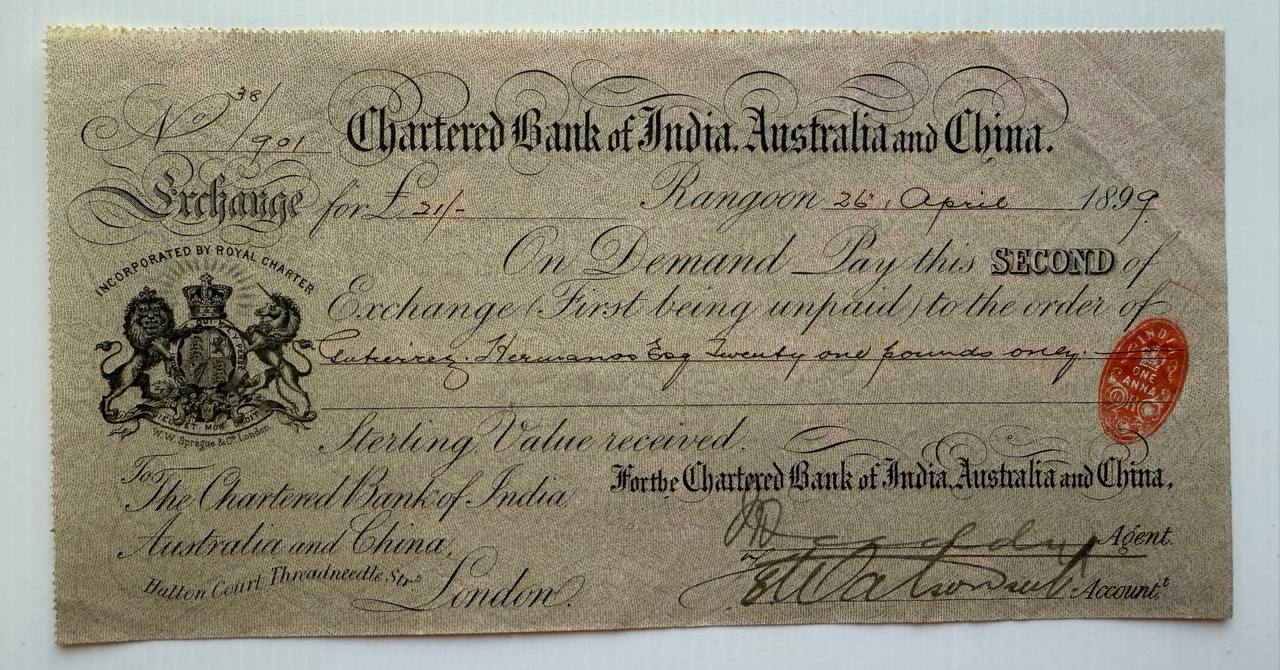 No 38/901
Chartered Bank of India, Australia and China.
Exchange for £ 21/- Rangoon 26, April 1899
INCORPORATED BY ROYAL CHARTER
On Demand Pay this SECOND of
Exchange (First being unpaid) to the order of
Gutierrez Hermanos Esq Twenty one pounds only.
INDIA
ONE
ANNA
DIEU ET MON
W.W. Sprague & Co. London
Sterling, Value received.
To
The Chartered Bank of India
Australia and China,
Hatton Court Threadneedle Str.
London.
For the Chartered Bank of India, Australia and China.
Agent.
Account.t